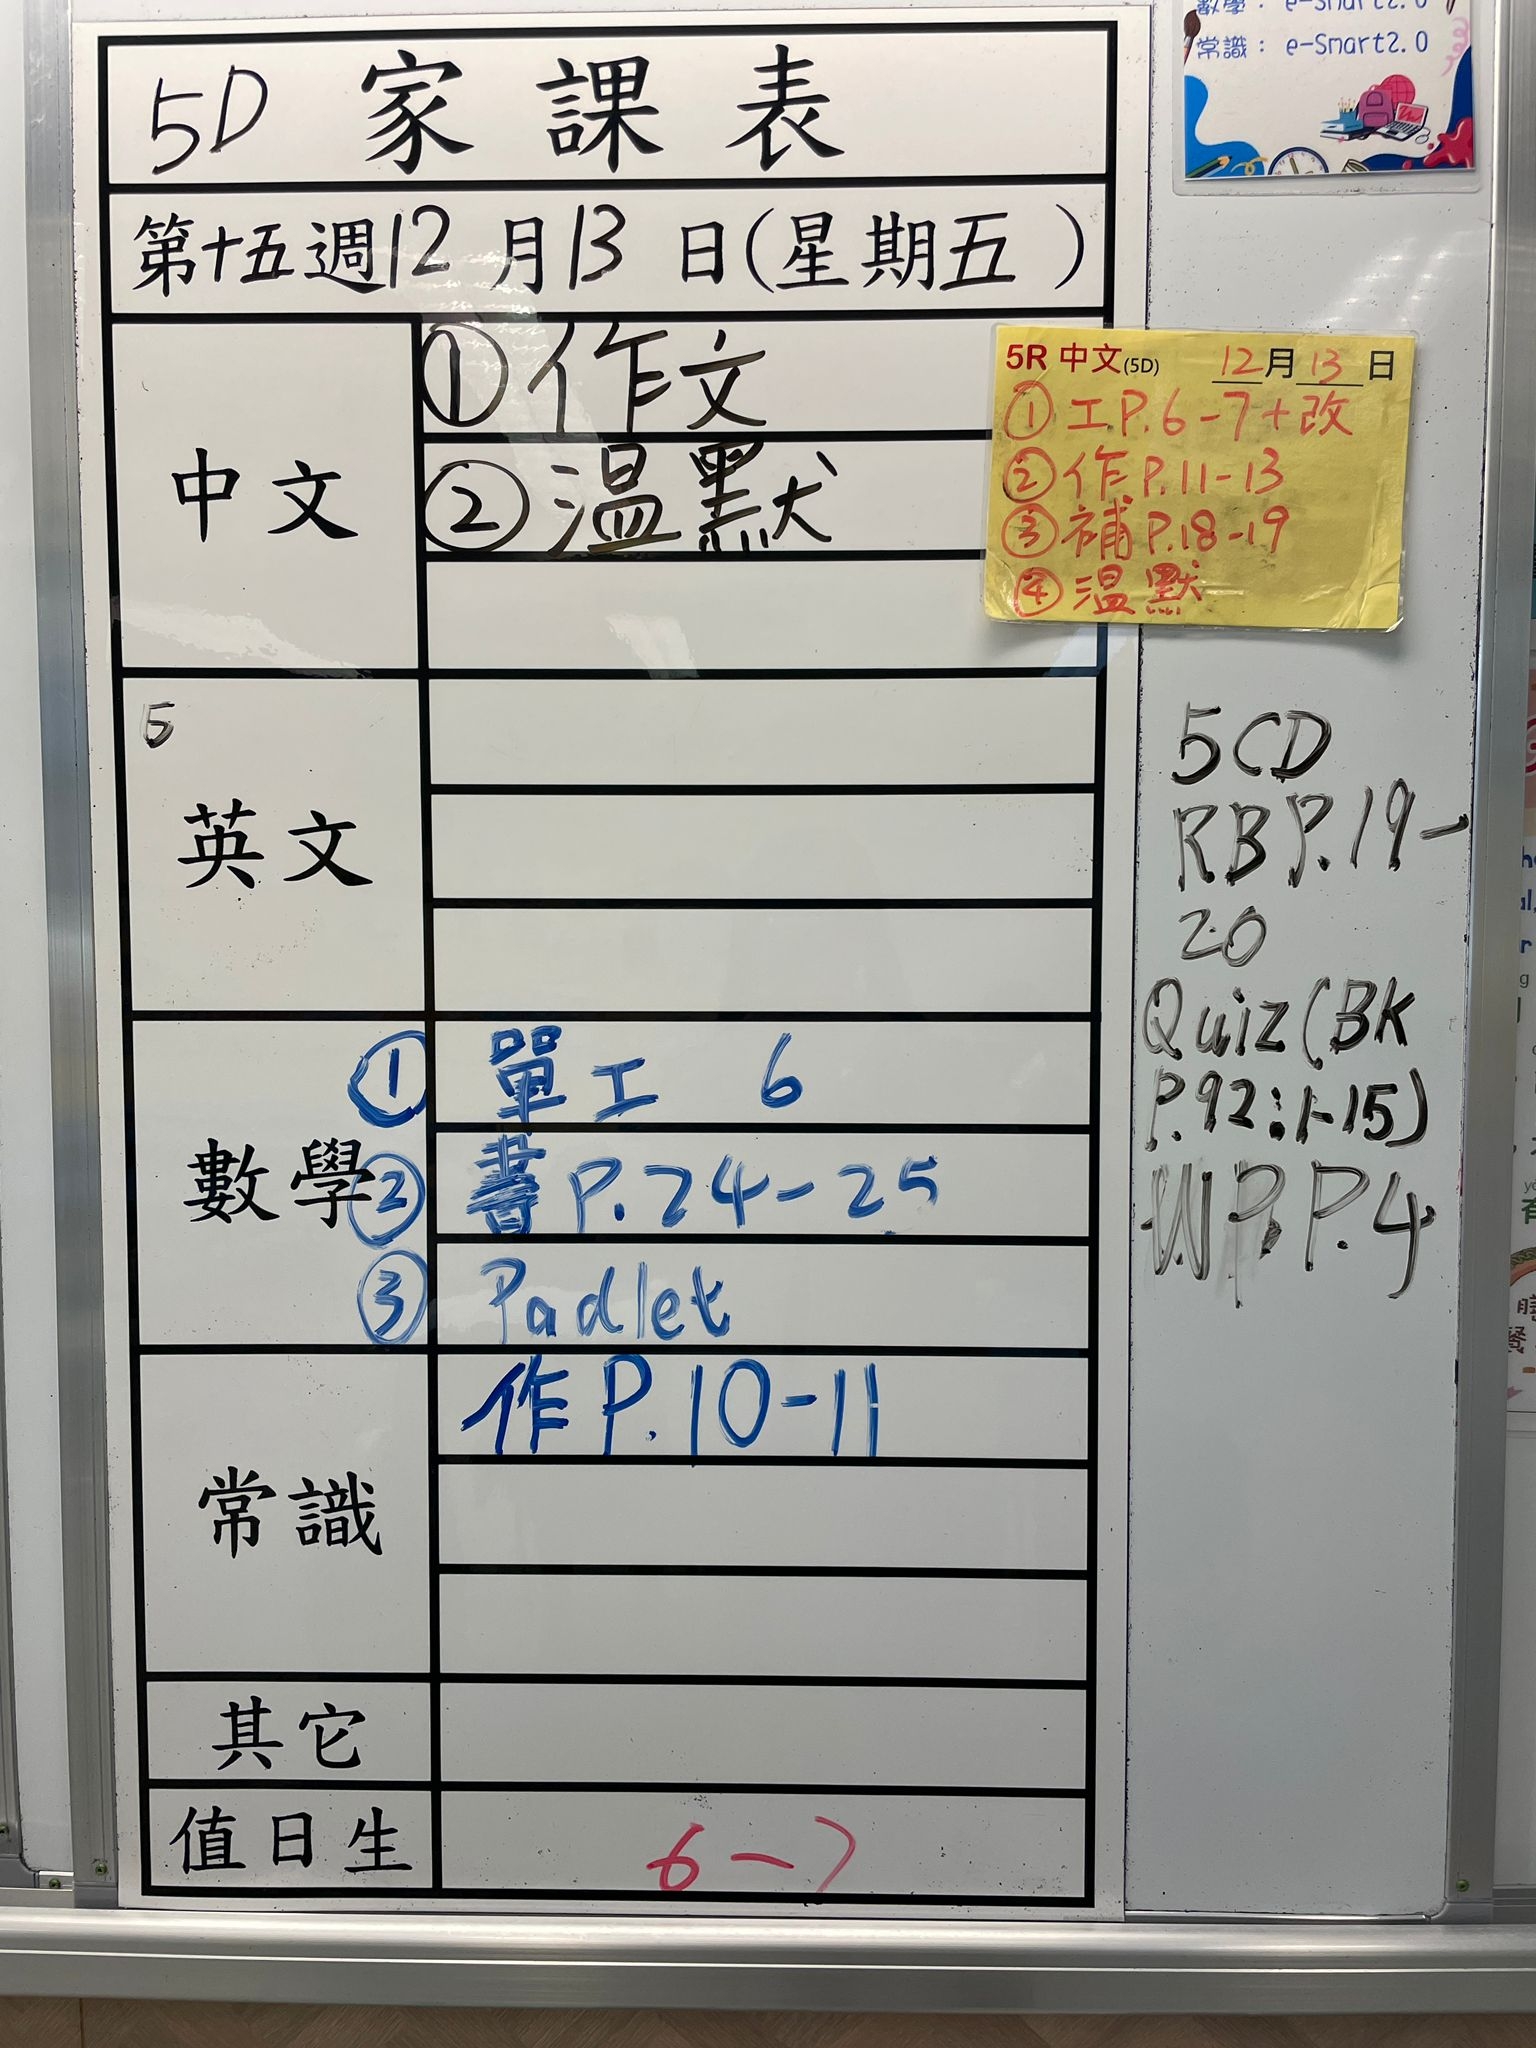 數學： e-Smart2.0
常識： e-Smart2.0
5D 家課表
第十五週12月13日(星期五)
中文
①作文
②溫默
5R 中文(5D) 12月13日
①工P.6-7+改
②作P.11-13
③補P.18-19
④溫默
5
英文
5CD
RB P.19-
20
Quiz(BK
P.92:1-15)
WP P.4
數學
① 單工 6
② 書P.24-25
③ Padlet
常識
作P.10-11
其它
值日生
6-7